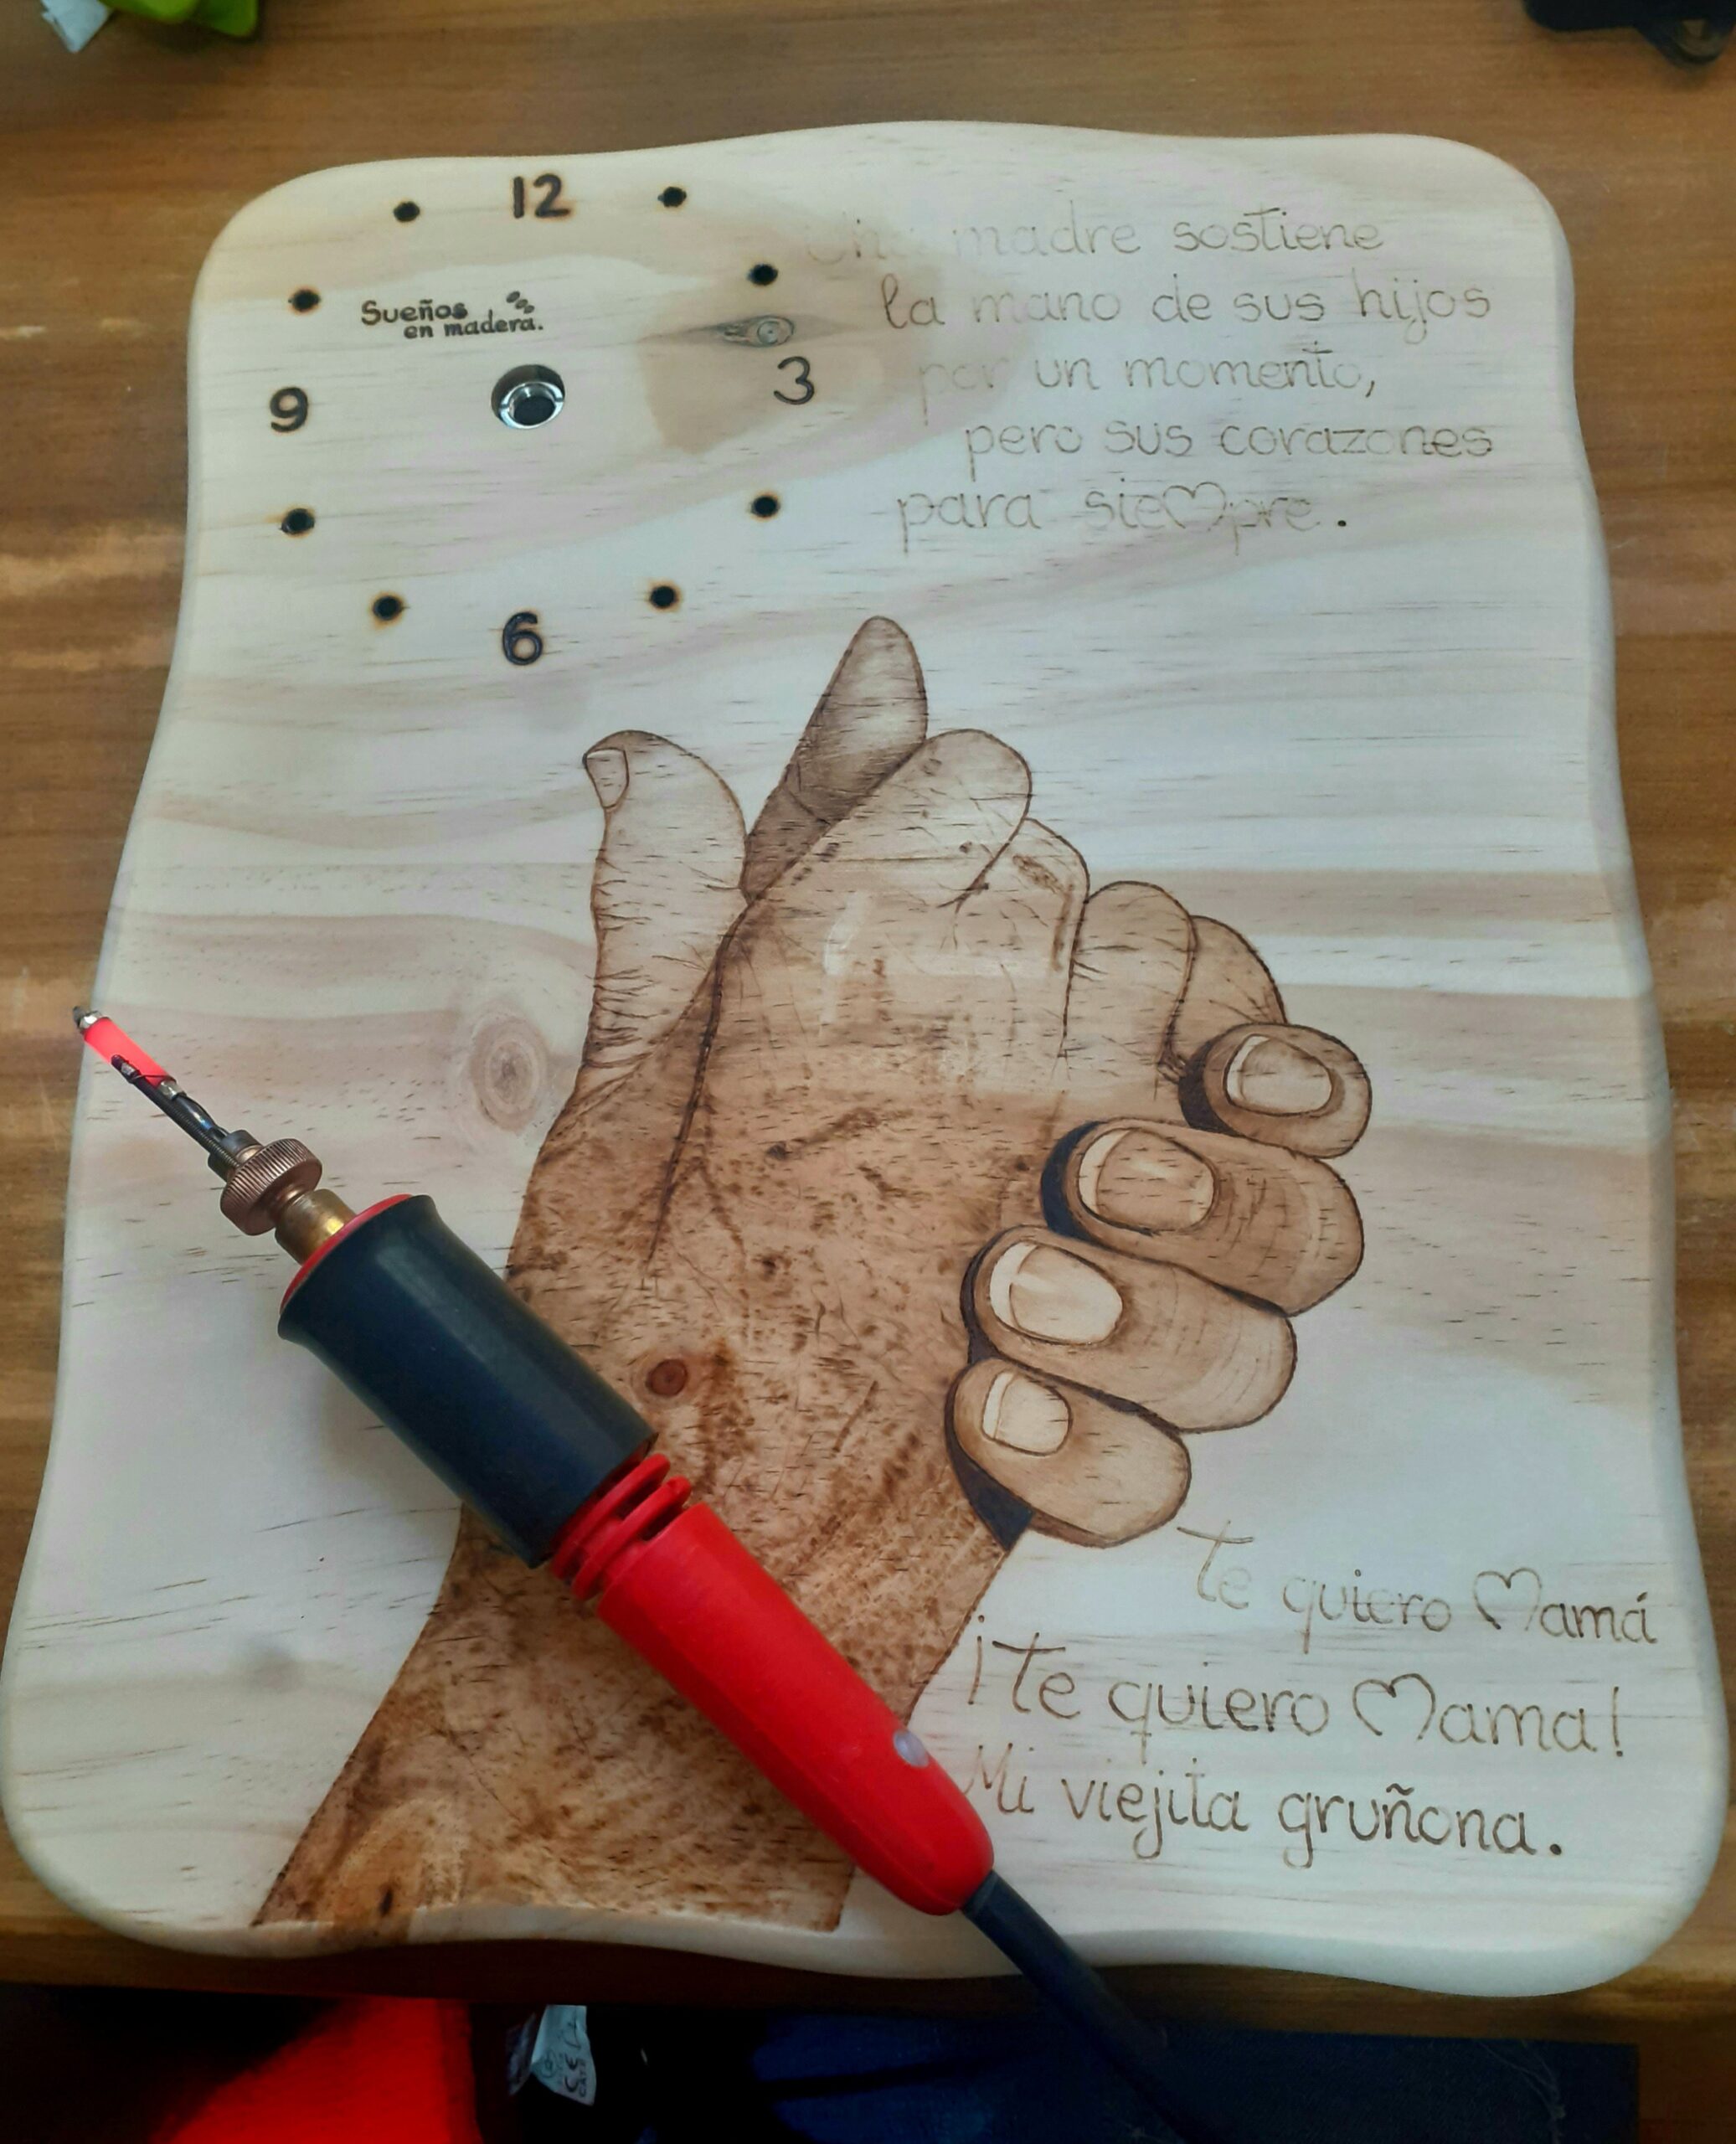 12
Sueños
en madera.
9
3
6
Una madre sostiene
la mano de sus hijos
por un momento,
pero sus corazones
para siempre.
te quiero Mamá
¡Te quiero Mama!
Mi viejita gruñona.